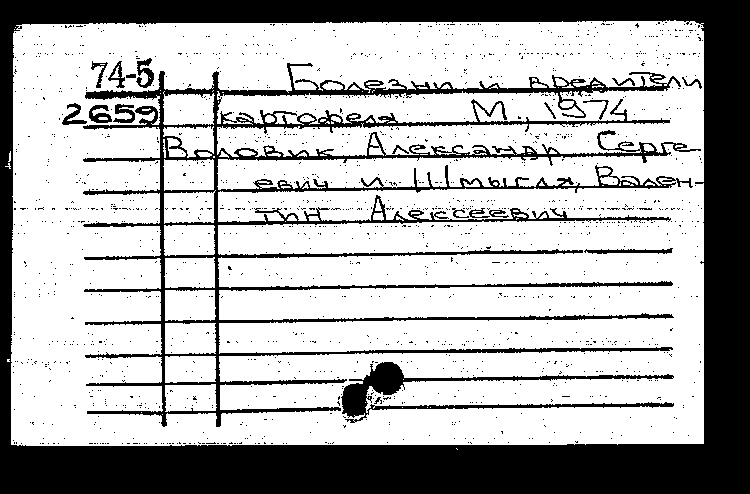 74-5 Болезни и вредители
2659 картофеля М., 1974
Воловик, Александр Серге-
евич и Шмыгля, Вален-
тин Алексеевич